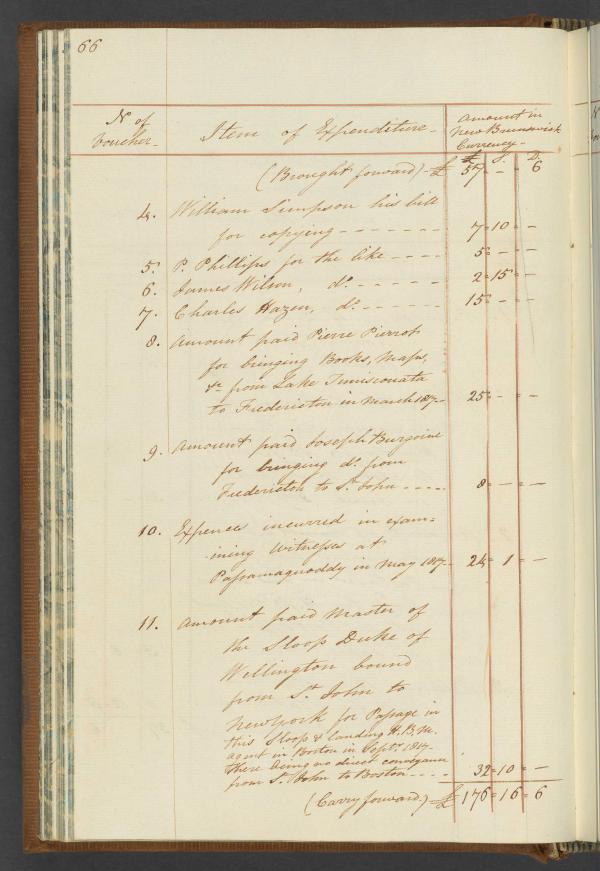 66
No of Voucher - Item of Expenditure - Amount in New Brunswick Currency -
£ S. D.
(Brought forward) - £ 57 " - " 6
4. William Simpson his bill
for copying - - - - - - - 7 " 10 " -
5. P. Phillips for the like - - - - 5 " - " -
6. James Wilson, do. - - - - - 2 " 15 " -
7. Charles Hazen, do. - - - - - 15 " - " -
8. Amount paid Pierre Pierrot
for bringing Books, Maps,
&c from Lake Timisconata
to Fredericton in March 1817 - 25 " - " -
9. Amount paid Joseph Burgoine
for bringing do. from
Fredericton to St. John - - - - 8 " - " -
10. Expences incurred in exam=
=ining Witnesses at
Passamaquoddy in May 1817 - 24 " 1 " -
11. Amount paid Master of
the Sloop Duke of
Wellington bound
from St. John to
New York for Passage in
this Sloop & landing H.B.M.
agent in Boston in Septr. 1817 -
there being no direct conveyance
from St. John to Boston - - - - 32 " 10 " -
(Carry forward.) - £ 176 " 16 " 6